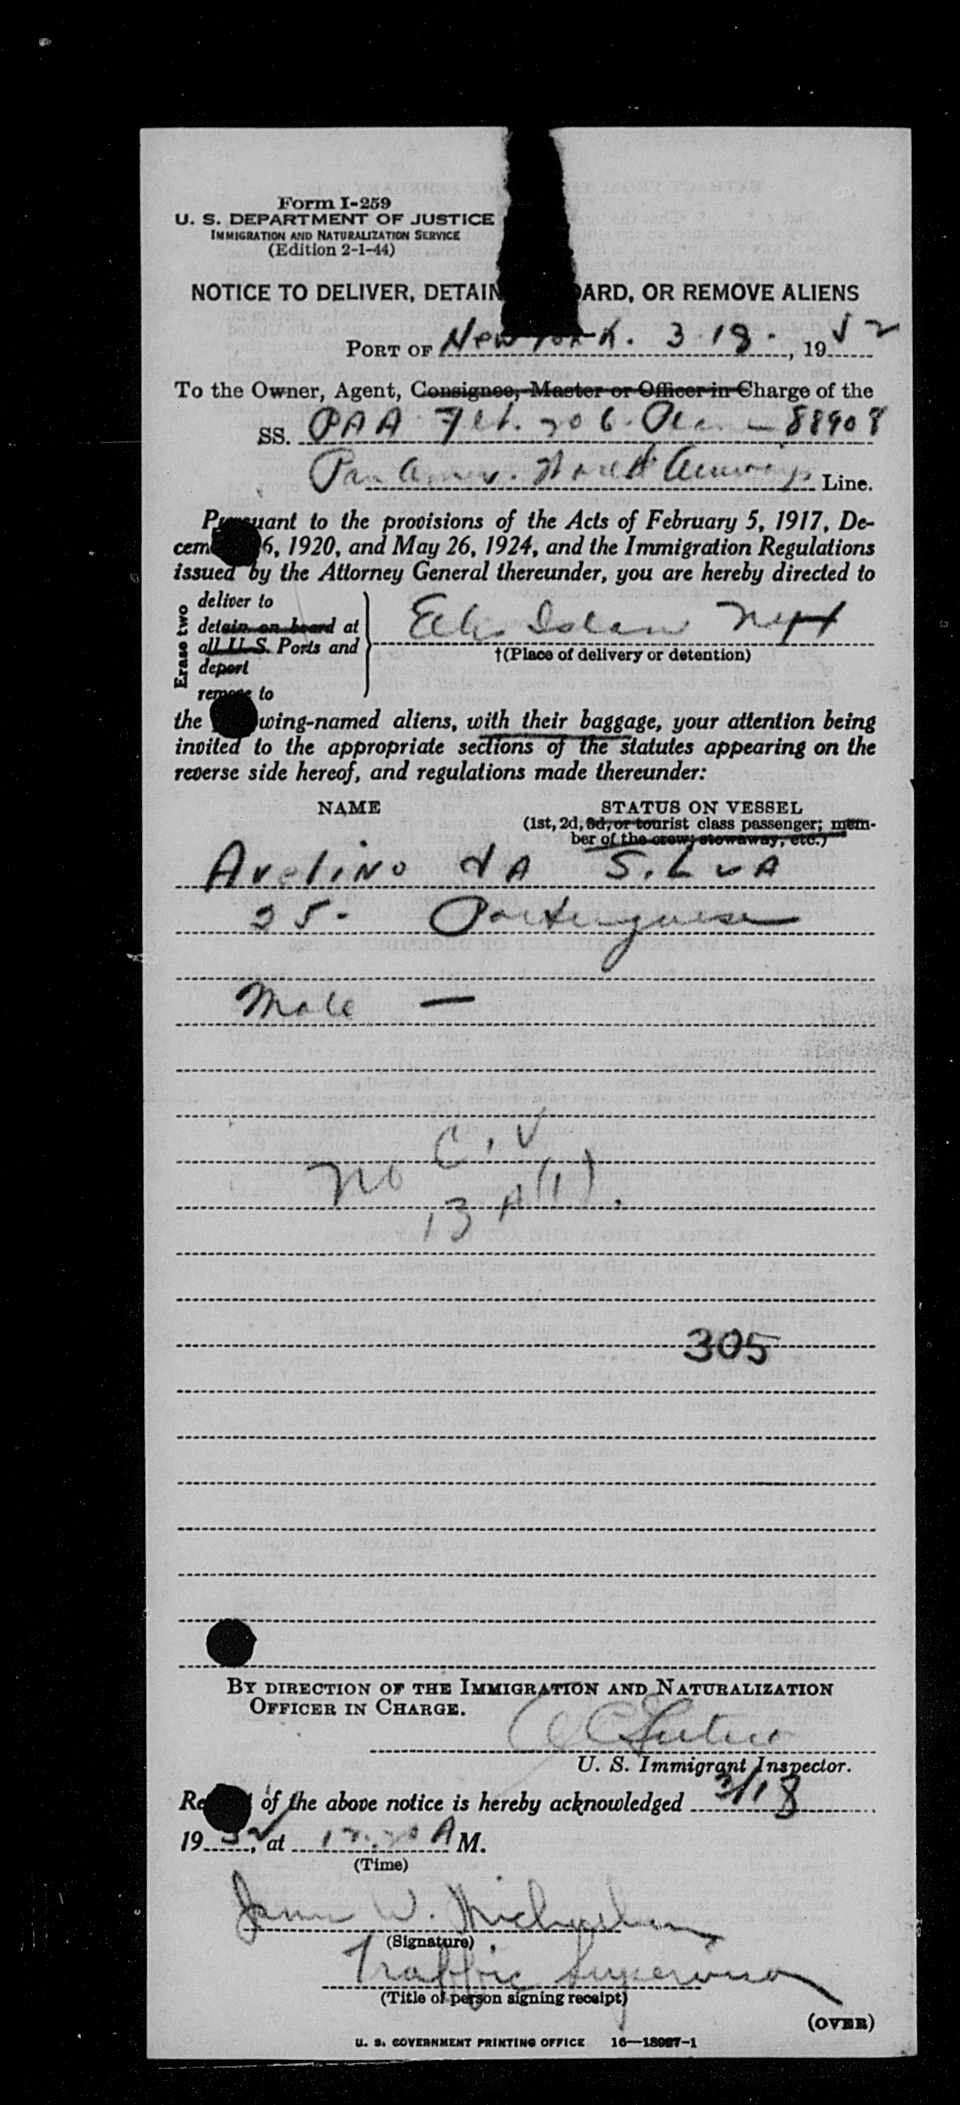 Form I-259
U. S. DEPARTMENT OF JUSTICE
IMMIGRATION AND NATURALIZATION SERVICE
(Edition 2-1-44)
NOTICE TO DELIVER, DETAIN ARD, OR REMOVE ALIENS
PORT OF New York. 3-18-, 1952
To the Owner, Agent, Consignee, Master or Officer in Charge of the
SS. PAA Flt. 206 88908
Pan Amer. World Airways Line.
Pursuant to the provisions of the Acts of February 5, 1917, De-
cem 6, 1920, and May 26, 1924, and the Immigration Regulations
issued by the Attorney General thereunder, you are hereby directed to
Erase two
deliver to
detain on board at
all U. S. Ports and
deport
remove to
Ellis Island
†(Place of delivery or detention)
the wing-named aliens, with their baggage, your attention being
invited to the appropriate sections of the statutes appearing on the
reverse side hereof, and regulations made thereunder:
NAME STATUS ON VESSEL
(1st, 2d, 3d, or tourist class passenger; mem-
ber of the crew; stowaway, etc.)
Avelino dA SiLvA
25- Portuguese
Male —
No C.V
13 A(1).
305
BY DIRECTION OF THE IMMIGRATION AND NATURALIZATION
OFFICER IN CHARGE.
U. S. Immigrant Inspector.
Re of the above notice is hereby acknowledged 3/18
1952, at 12:20 A M.
(Time)
W.
(Signature)
Traffic Supervisor
(Title of person signing receipt)
(OVER)
U. S. GOVERNMENT PRINTING OFFICE 16—18927-1